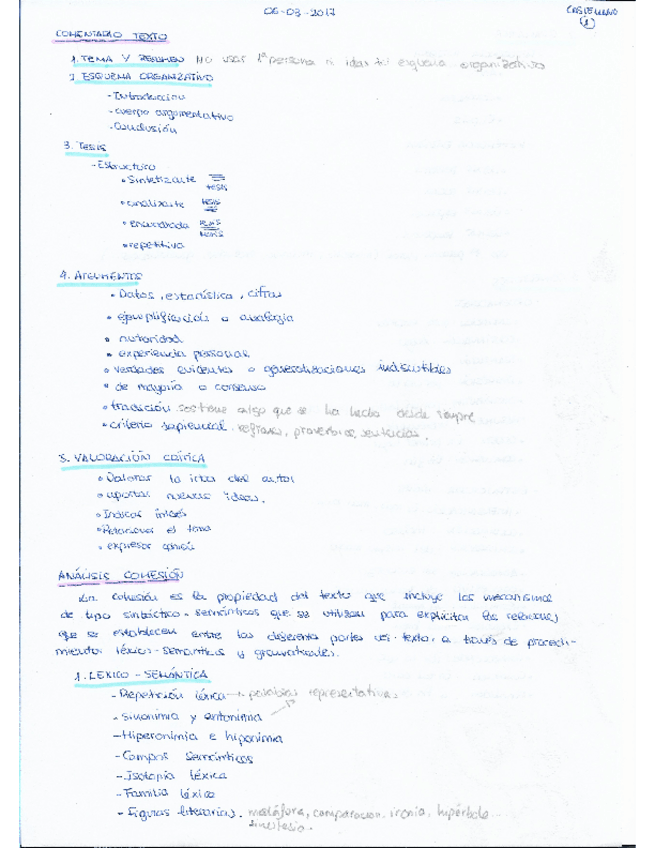 06-03-2017
CASTELLANO
1
COMENTARIO TEXTO
1. TEMA Y RESUMEN No usar 1ª persona ni ideas tu esquema organizativo
2. ESQUEMA ORGANIZATIVO
- Introducción
- cuerpo argumentativo
- Conclusión
3. Tesis
- Estructura
• Sintetizante tesis
• analizante tesis
• encuadrada tesis tesis
• repetitiva
4. ARGUMENTOS
• Datos, estadística, cifras
• ejemplificación o analogía
• autoridad
• experiencia personal
• verdades evidentes o generalizaciones indiscutibles
• de mayoría o consenso
• tradición sostiene algo que se ha hecho desde siempre
• criterio sapiencial. refranes, proverbios, sentencias.
5. VALORACIÓN CRÍTICA
• Valorar la idea del autor
• aportar nuevas ideas.
• Indicar interés
• Relacionar el tema
• expresar opinión
ANÁLISIS COHESIÓN
La cohesión es la propiedad del texto que incluye los mecanismos
de tipo sintáctico-semánticos que se utilizan para explicitar las relaciones
que se establecen entre las diferentes partes del texto, a través de procedi-
mientos léxico-semánticos y gramaticales.
1. LÉXICO-SEMÁNTICA
- Repetición léxica → palabras representativas
- Sinonimia y antonimia
- Hiperonimia e hiponimia
- Campos semánticos
- Isotopia léxica
- Familia léxica
- Figuras literarias. metáfora, comparacion, ironia, hipérbole...
sinestesia.